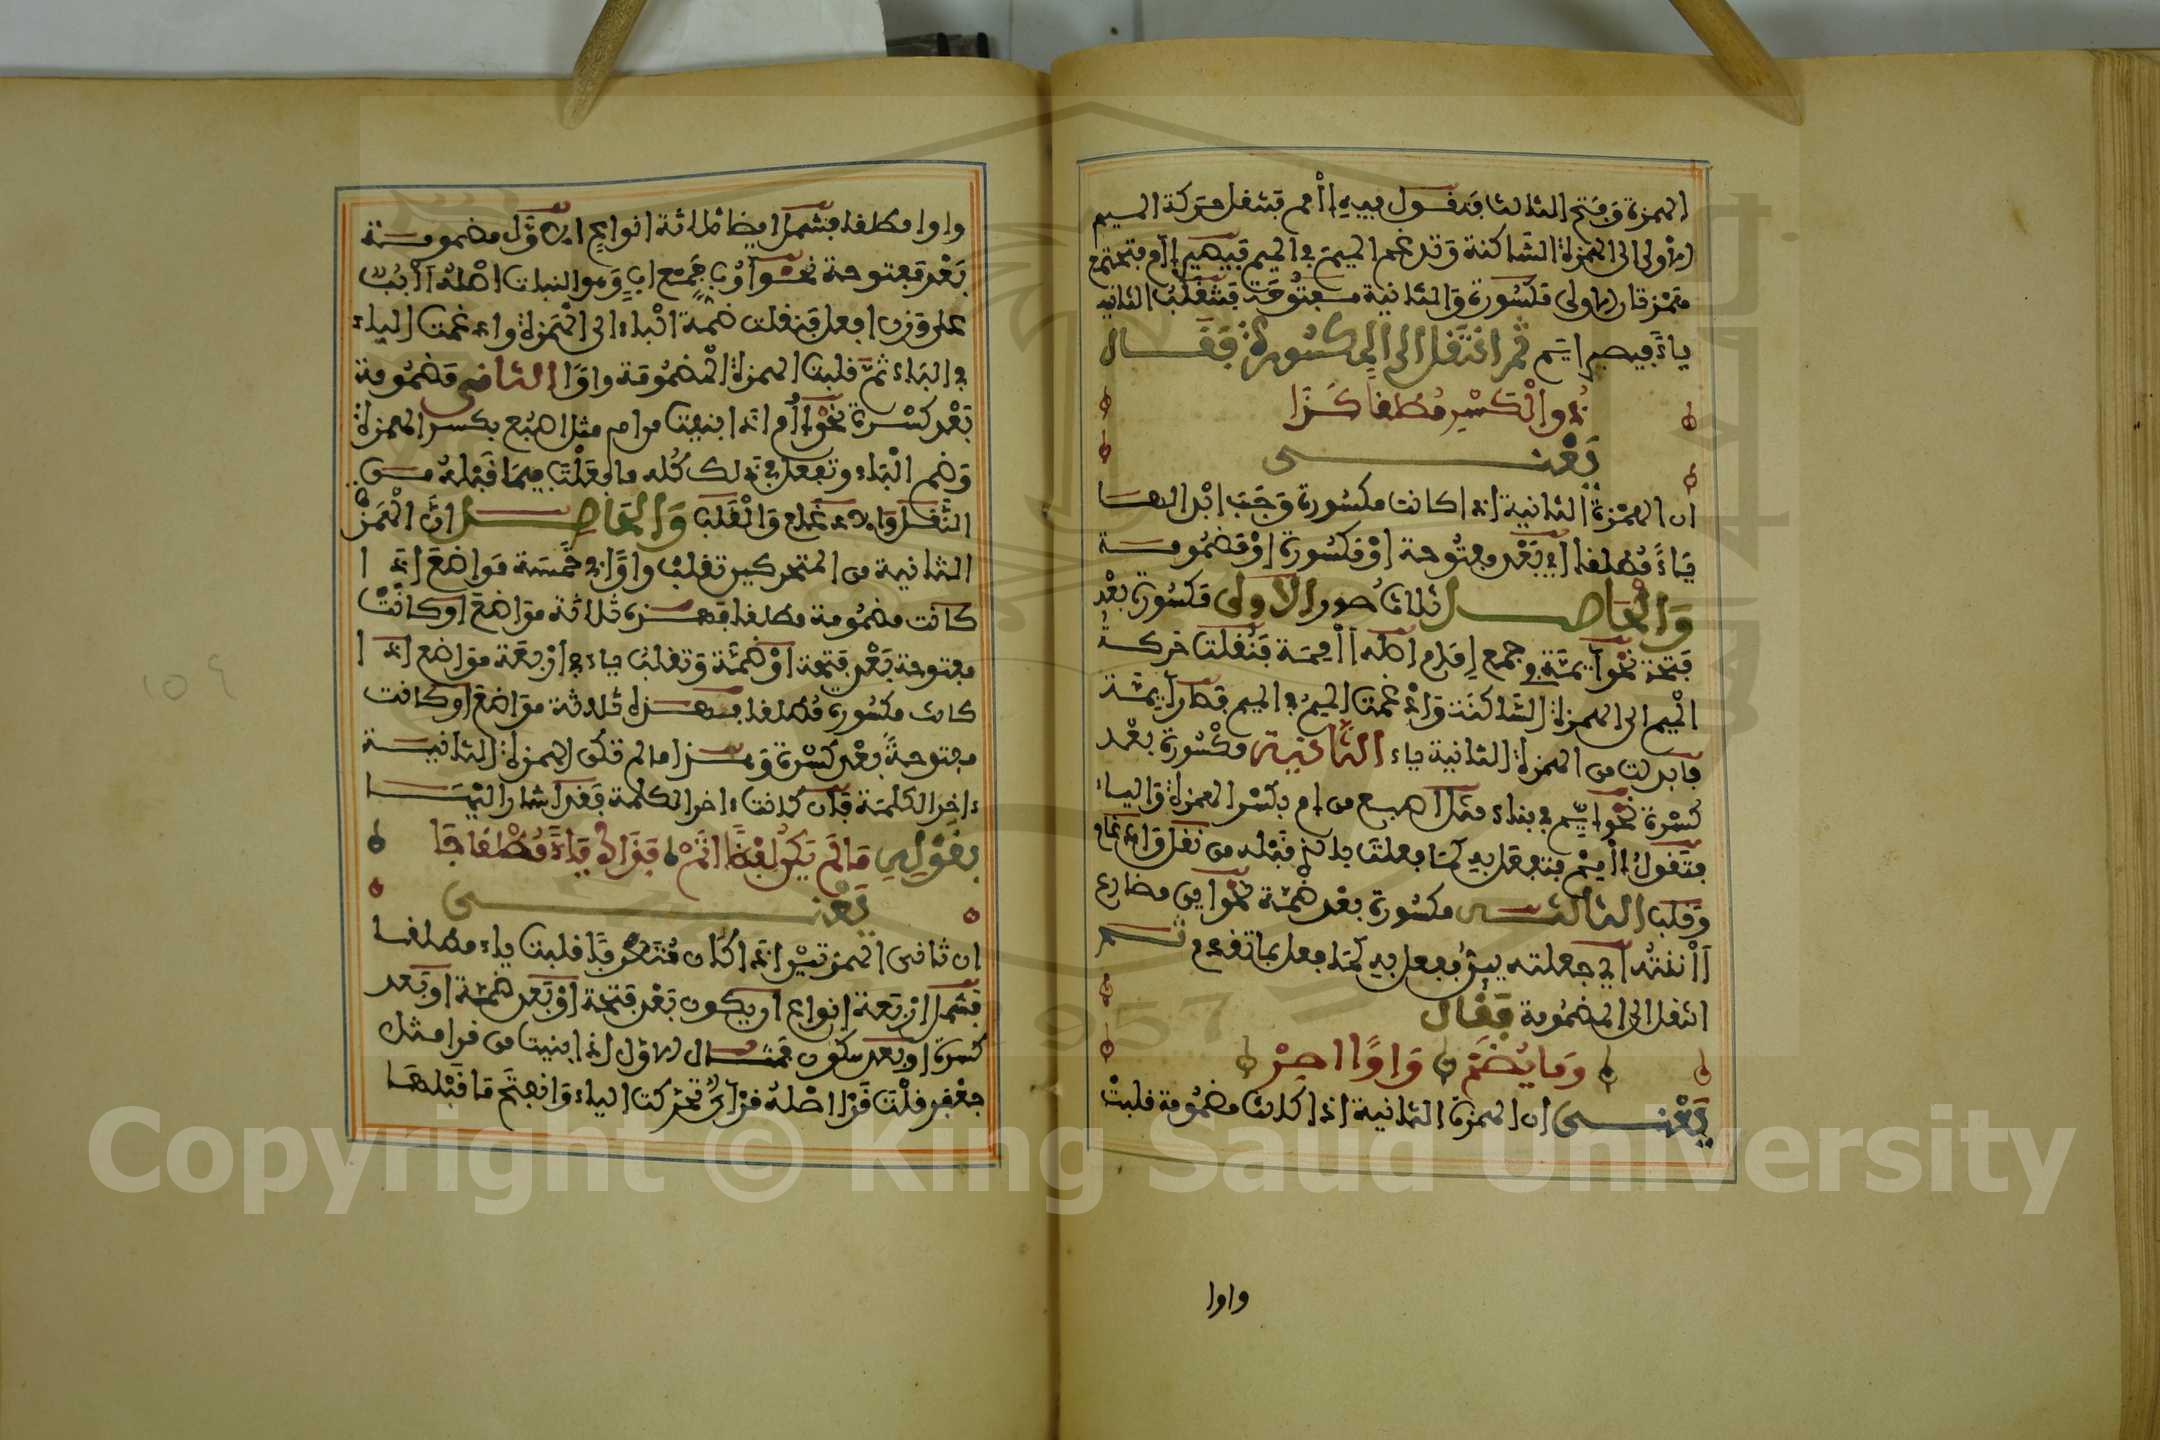 الهمزة وفتح الثالثا فتقول فيه اأمم فتنقل حركة الميم
الاولى الى الهمزة الساكنة وتدغم الميم في الميم فيصير إأم فتجتمع
همزتان الاولى مكسورة والثانية مفتوحة فتنقلب الثانية
ياءً فيصير ايم ثم انتقل الى المكسورة فقال
ذو الكسر مطلقا كذا
يعني
ان الهمزة الثانية اذا كانت مكسورة وجب ابدالها
ياءً مطلقا اي بعد مفتوحة او مكسورة او مضمومة
والحاصل ثلاث صور الاولى مكسورة بعد
فتحة نحو أيمة وجمع إمام اصله أأممة فنقلت حركة
الميم الى الهمزة الساكنة وادغمت الميم في الميم فصار أيمة
فابدلت من الهمزة الثانية ياء الثانية مكسورة بعد
كسرة نحو إيم في بناء مثل اصبع من ام بكسر الهمزة والباء
فتقول اأمم فتفعل به كما فعلت بالذي قبله من نقل وادغام
وقلب الثالث مكسورة بعد ضمة نحو اين مضارع
أأننته اي جعلته يين ففعل به كما فعل بما تقدم ثم
انتقل الى المضمومة فقال
وما يضم واوا اصر
يعني ان الهمزة الثانية اذا كانت مضمومة قلبت
واوا
واوا مطلقا فشمل ايضا ثلاثة انواع الاول مضمومة
بعد مفتوحة نحو أوب جمع اب وهو النبات اصله أأبب
على وزن افعل فنقلت ضمة الباء الى الهمزة وادغمت الباء
في الباء ثم قلبت الهمزة المضمومة واوا الثاني مضمومة
بعد كسرة نحو إأم اذا ابنيت من ام مثل اصبع بكسر الهمزة
وضم الباء وتفعل في ذلك كله ما فعلت فيما قبله من
النقل والادغام والقلب والحاصل ان الهمز
الثانية من المتحركين تقلب واوا في خمسة مواضع اذا
كانت مضمومة مطلقا فهذه ثلاثة مواضع او كانت
مفتوحة بعد فتحة او ضمة وتقلب ياء في اربعة مواضع اذا
كانت مكسورة مطلقا فهذه ثلاثة مواضع او كانت
مفتوحة بعد كسرة وهذا ما لم تكن الهمزة الثانية
ءاخر الكلمة فان كانت ءاخر الكلمة فقد اشار اليها
بقوله ما لم يكن لفظا اتم فذاك ياء مطلقا جا
يعني
ان ثاني الهمزتين اذا كان متطرفا قلبت ياء مطلقا
فشمل اربعة انواع ان يكون بعد فتحة او بعد ضمة او بعد
كسرة او بعد سكون فمثال الاول اذا بنيت من قرا مثل
جعفر قلت قرا اصله قرأي تحركت الياء وانفتح ما قبلها
Copyright © King Saud University
1957